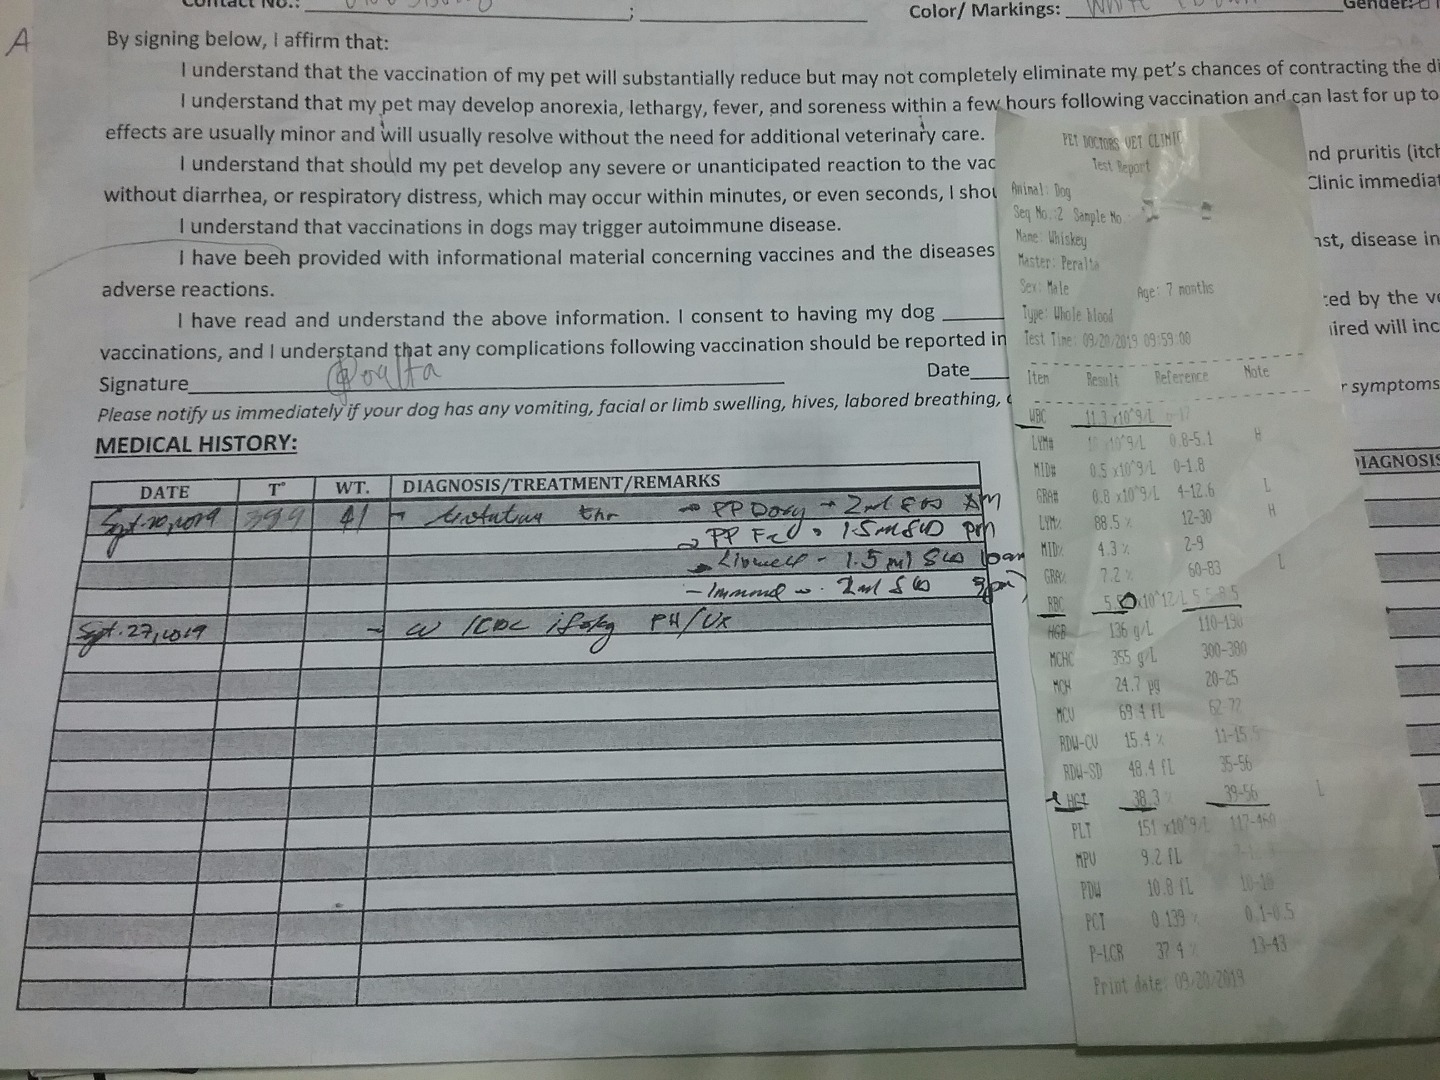 Contact No.: ;
Color/ Markings: White Gender:
A
By signing below, I affirm that:
I understand that the vaccination of my pet will substantially reduce but may not completely eliminate my pet's chances of contracting the di
I understand that my pet may develop anorexia, lethargy, fever, and soreness within a few hours following vaccination and can last for up to
effects are usually minor and will usually resolve without the need for additional veterinary care.
I understand that should my pet develop any severe or unanticipated reaction to the vac nd pruritis (itch
without diarrhea, or respiratory distress, which may occur within minutes, or even seconds, I shou Clinic immediat
I understand that vaccinations in dogs may trigger autoimmune disease.
I have been provided with informational material concerning vaccines and the diseases nst, disease in
adverse reactions.
I have read and understand the above information. I consent to having my dog ted by the ve
vaccinations, and I understand that any complications following vaccination should be reported in uired will inc
Signature Peralta Date
Please notify us immediately if your dog has any vomiting, facial or limb swelling, hives, labored breathing, r symptoms
MEDICAL HISTORY:
DATE T° WT. DIAGNOSIS/TREATMENT/REMARKS
Sept. 20, 2019 39.9
PP Doxy 2ml AM
PP 1.5ml pm
1.5 ml
2ml
Sept. 27, 2019 CBC if okay
DIAGNOSIS
PET DOCTORS VET CLINIC
Test Report
Animal: Dog
Seq No.:2 Sample No.
Name: Whiskey
Master: Peralta
Sex: Male Age: 7 months
Type: Whole blood
Test Time: 09/20/2019 09:59:00
Item Result Reference Note
WBC 11.3 x10^9/L
LYM# x10^9/L 0.8-5.1 H
MID# 0.5 x10^9/L 0-1.8
GRA# 0.8 x10^9/L 4-12.6 L
LYM% 88.5 % 12-30 H
MID% 4.3 % 2-9
GRA% 7.2 % 60-83 L
RBC x10^12/L 5.5-8.5
HGB 136 g/L 110-190
MCHC 355 g/L 300-380
MCH 24.7 pg 20-25
MCV 69.4 fL 62-72
RDW-CV 15.4 % 11-15.5
RDW-SD 48.4 fL 35-56
HCT 38.3 % 39-56 L
PLT 151 x10^9/L 117-460
MPV 9.2 fL
PDW 10.8 fL
PCT 0.139 % 0.1-0.5
P-LCR 37.4 % 13-43
Print date: 09/20/2019